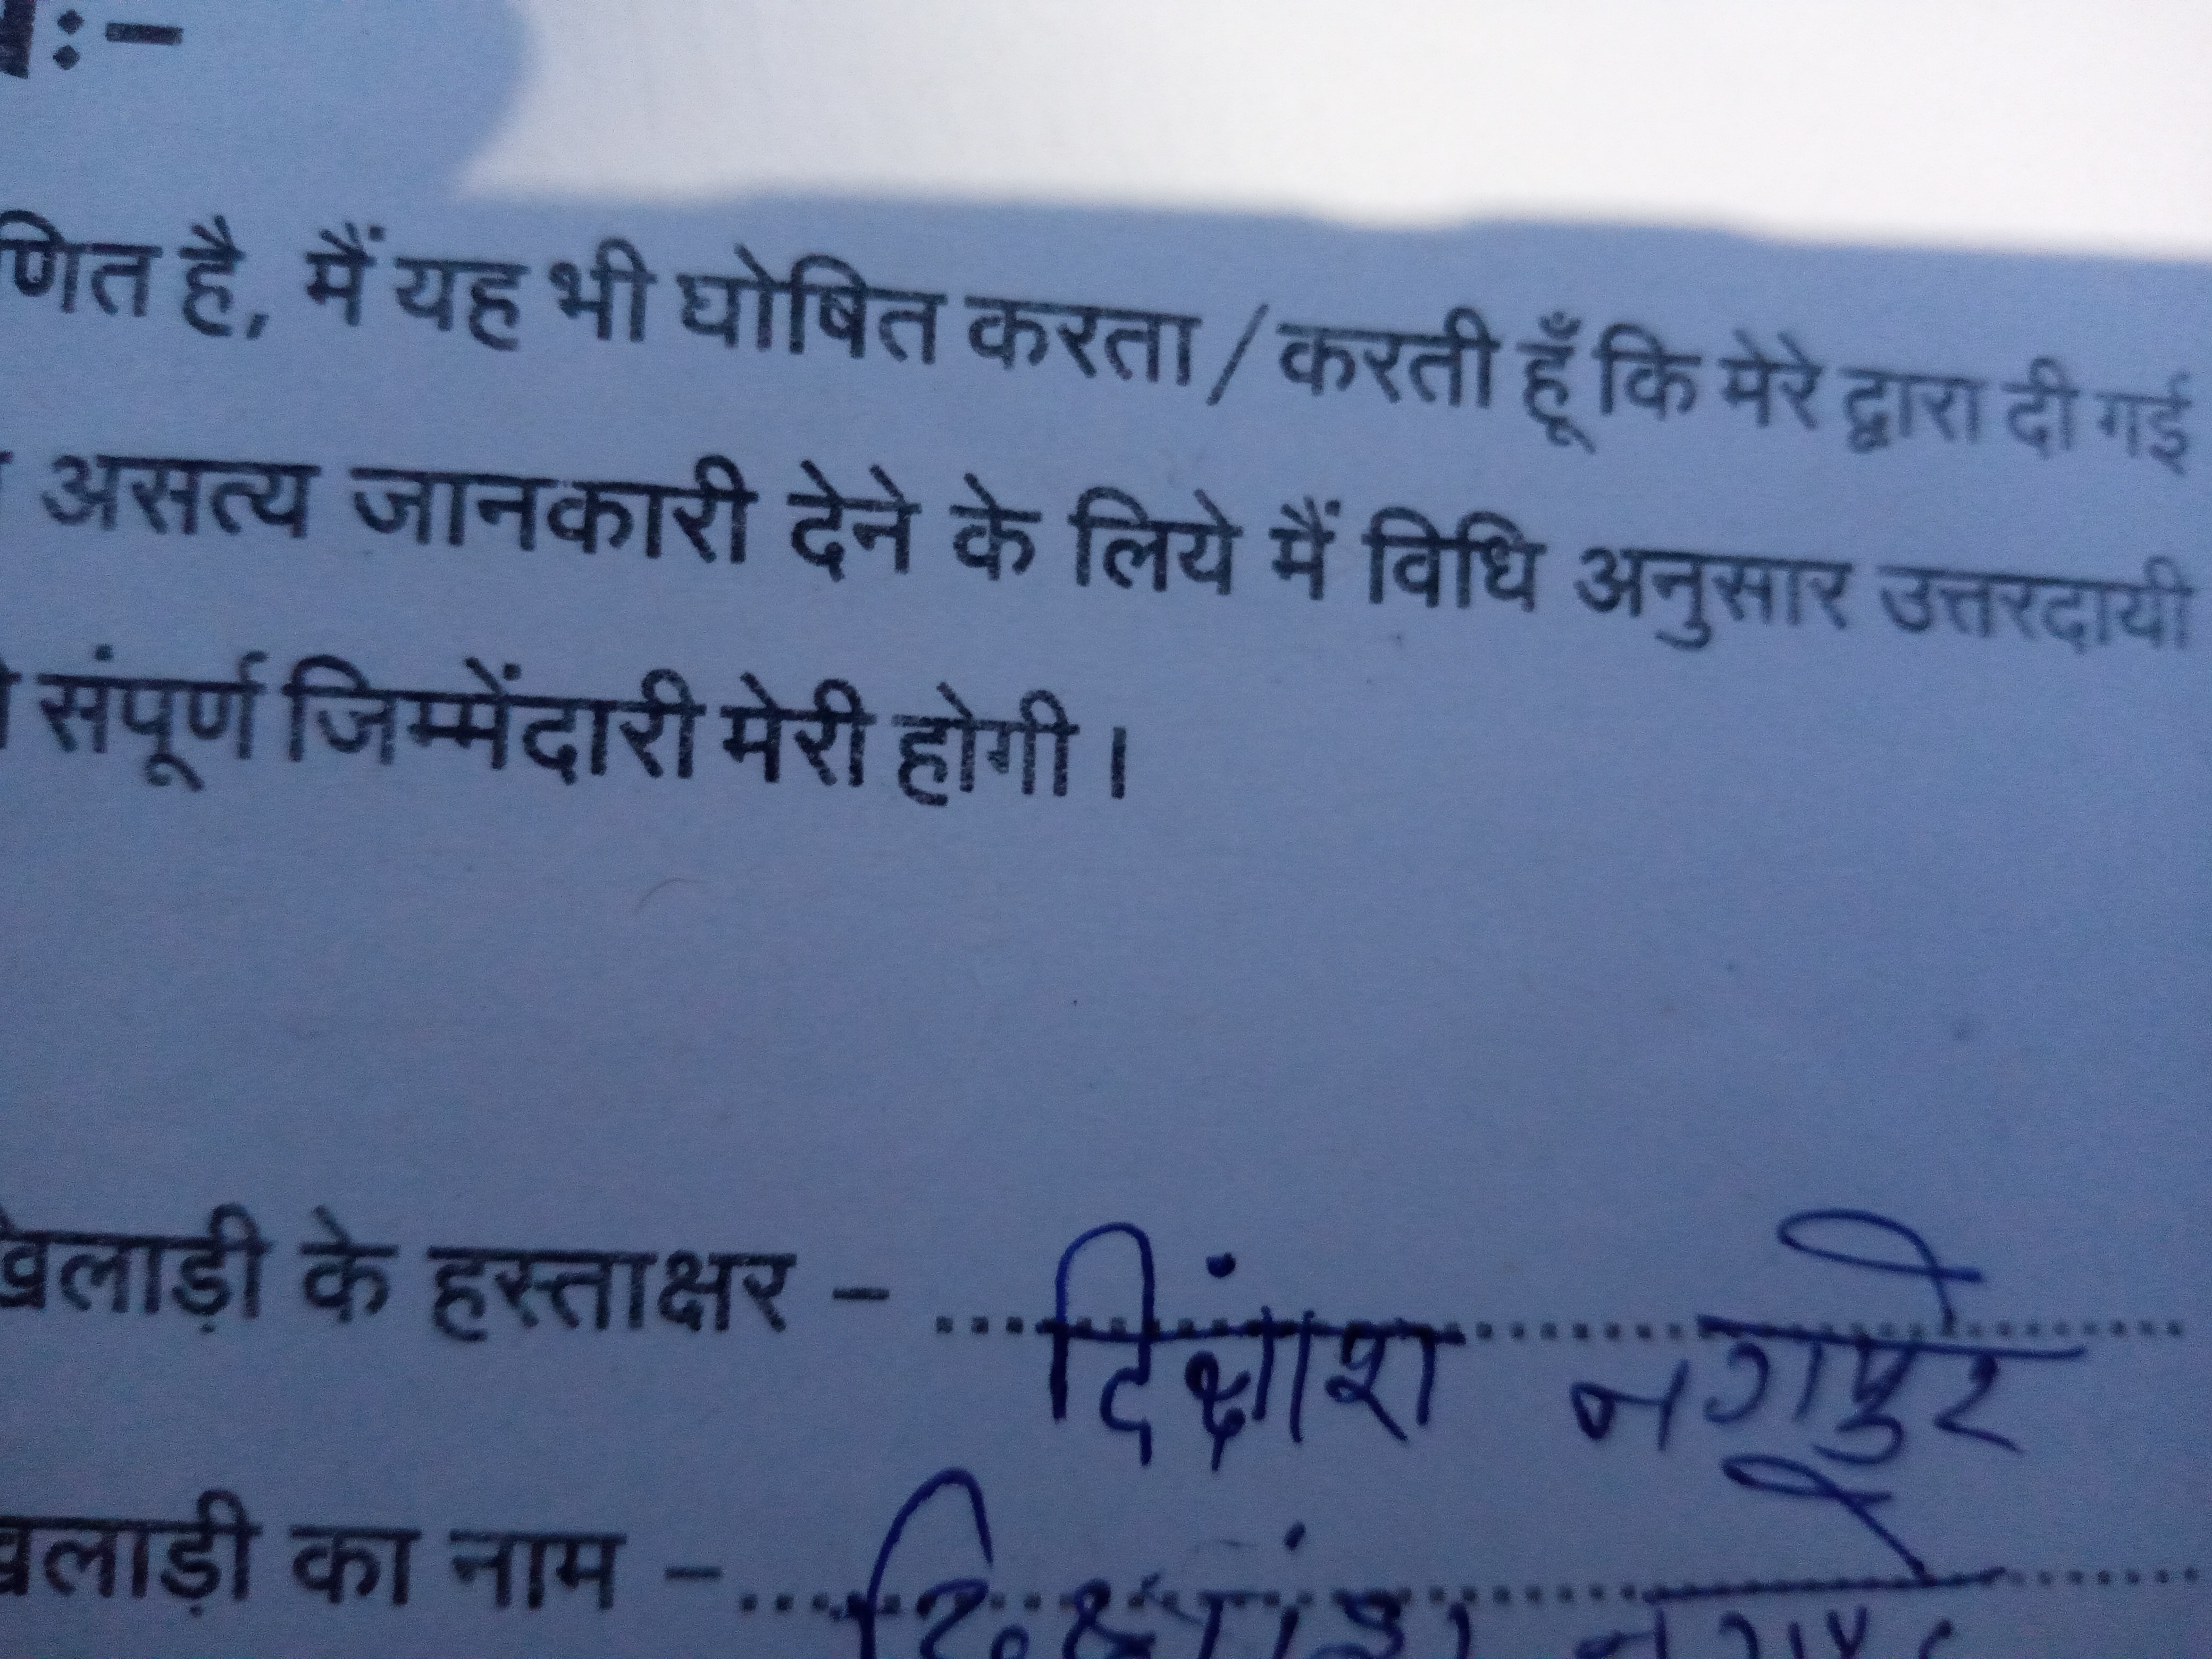 :-
णित है, मैं यह भी घोषित करता / करती हूँ कि मेरे द्वारा दी गई
असत्य जानकारी देने के लिये मैं विधि अनुसार उत्तरदायी
संपूर्ण जिम्मेंदारी मेरी होगी।
खिलाड़ी के हस्ताक्षर - दिक्षांश नगपुरे
खिलाड़ी का नाम -